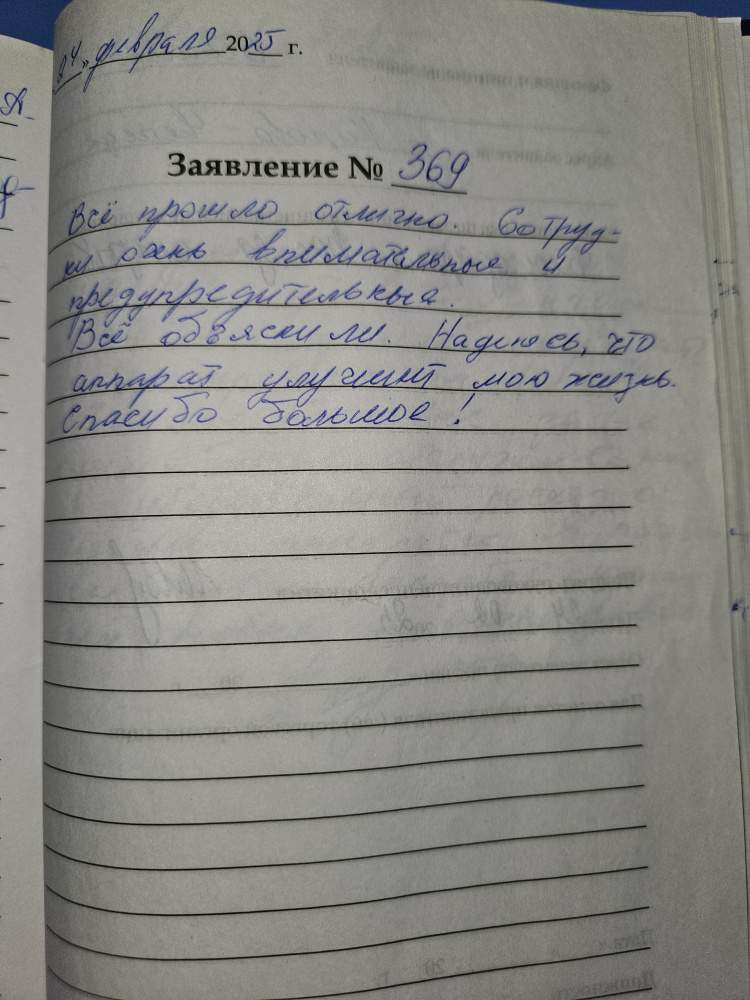 24 » февраля 2025 г.
Заявление № 369
Всё прошло отлично. Сотруд-
ки очень внимательные и
предупредительные.
Всё объяснили. Надеюсь, что
аппарат улучшит мою жизнь.
Спасибо большое!